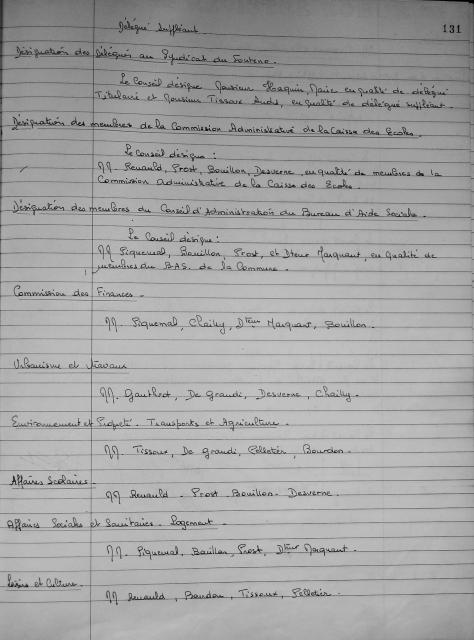 131
Délégué Suppléant.
Désignation des Délégués au Syndicat du
Le Conseil désigne Monsieur Maire en qualité de délégué
Titulaire et Monsieur Tissoux André, en qualité de délégué suppléant.
Désignation des membres de la Commission Administrative de la Caisse des Ecoles.
Le Conseil désigne :
MM. Renauld, Prost, Bouillon, Desverne, en qualité de membres de la
Commission Administrative de la Caisse des Ecoles.
Désignation des membres du Conseil d'Administration du Bureau d'Aide Sociale.
Le Conseil désigne :
MM Piquemal, Bouillon, Prost, et Dteur Marquant, en qualité de
membres du B.A.S. de la Commune.
Commission des Finances -
MM. Piquemal, Chailly, Dteur Marquant, Bouillon.
Urbanisme et travaux
MM. Gauthrot, De Grandi, Desverne, Chailly.
Environnement et Propreté. Transports et Agriculture.
MM. Tissoux, De Grandi, Pelletier, Bourdon.
Affaires Scolaires.
MM Renauld - Prost - Bouillon - Desverne.
Affaires Sociales et Sanitaires. Logement.
MM. Piquemal, Bouillon, Prost, Dteur Marquant.
Loisirs et Culture.
MM Renauld, Bourdon, Tissoux, Pelletier.